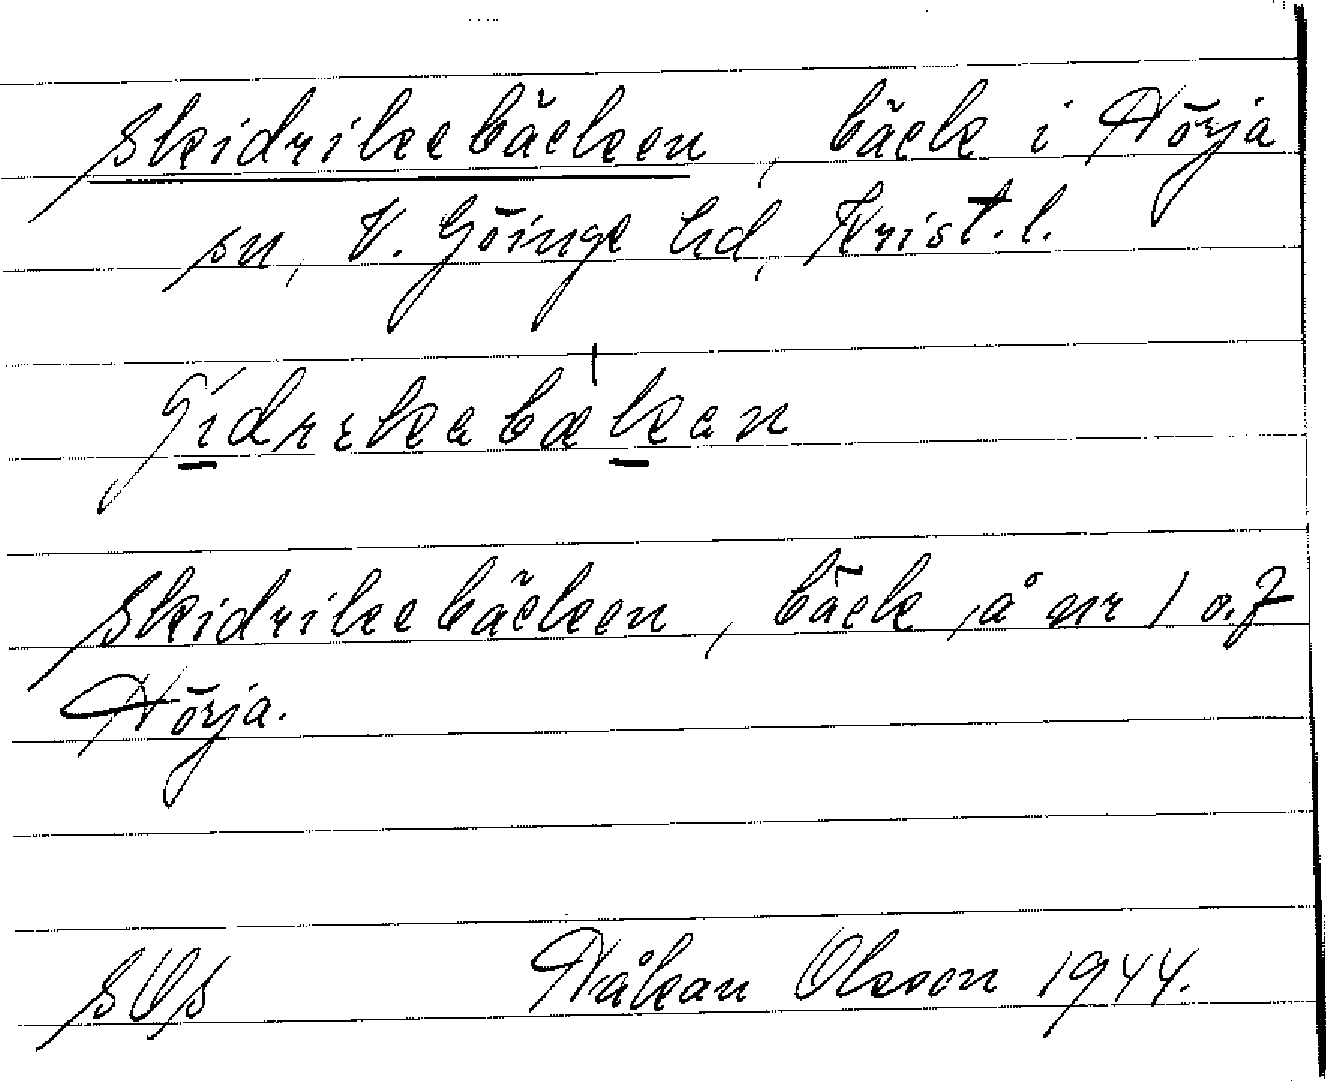 Skidrikebäcken, bäck i Nörja
sn, V. Göinge hd, Krist. l.
Skidrikebäcken, bäck, å nr 1 o. 7
Nörja.
SOS Håkan Olsson 1944.